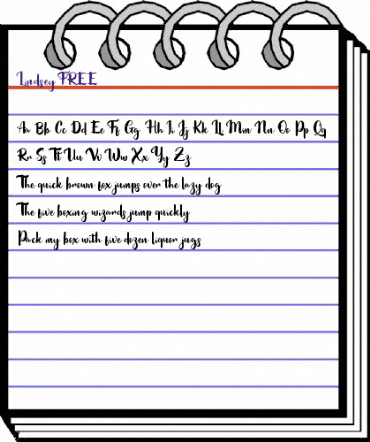 Lindsey FREE
Aa Bb Cc Dd Ee Ff Gg Hh Ii Jj Kk Ll Mm Nn Oo Pp Qq
Rr Ss Tt Uu Vv Ww Xx Yy Zz
The quick brown fox jumps over the lazy dog
The five boxing wizards jump quickly
Pack my box with five dozen liquor jugs